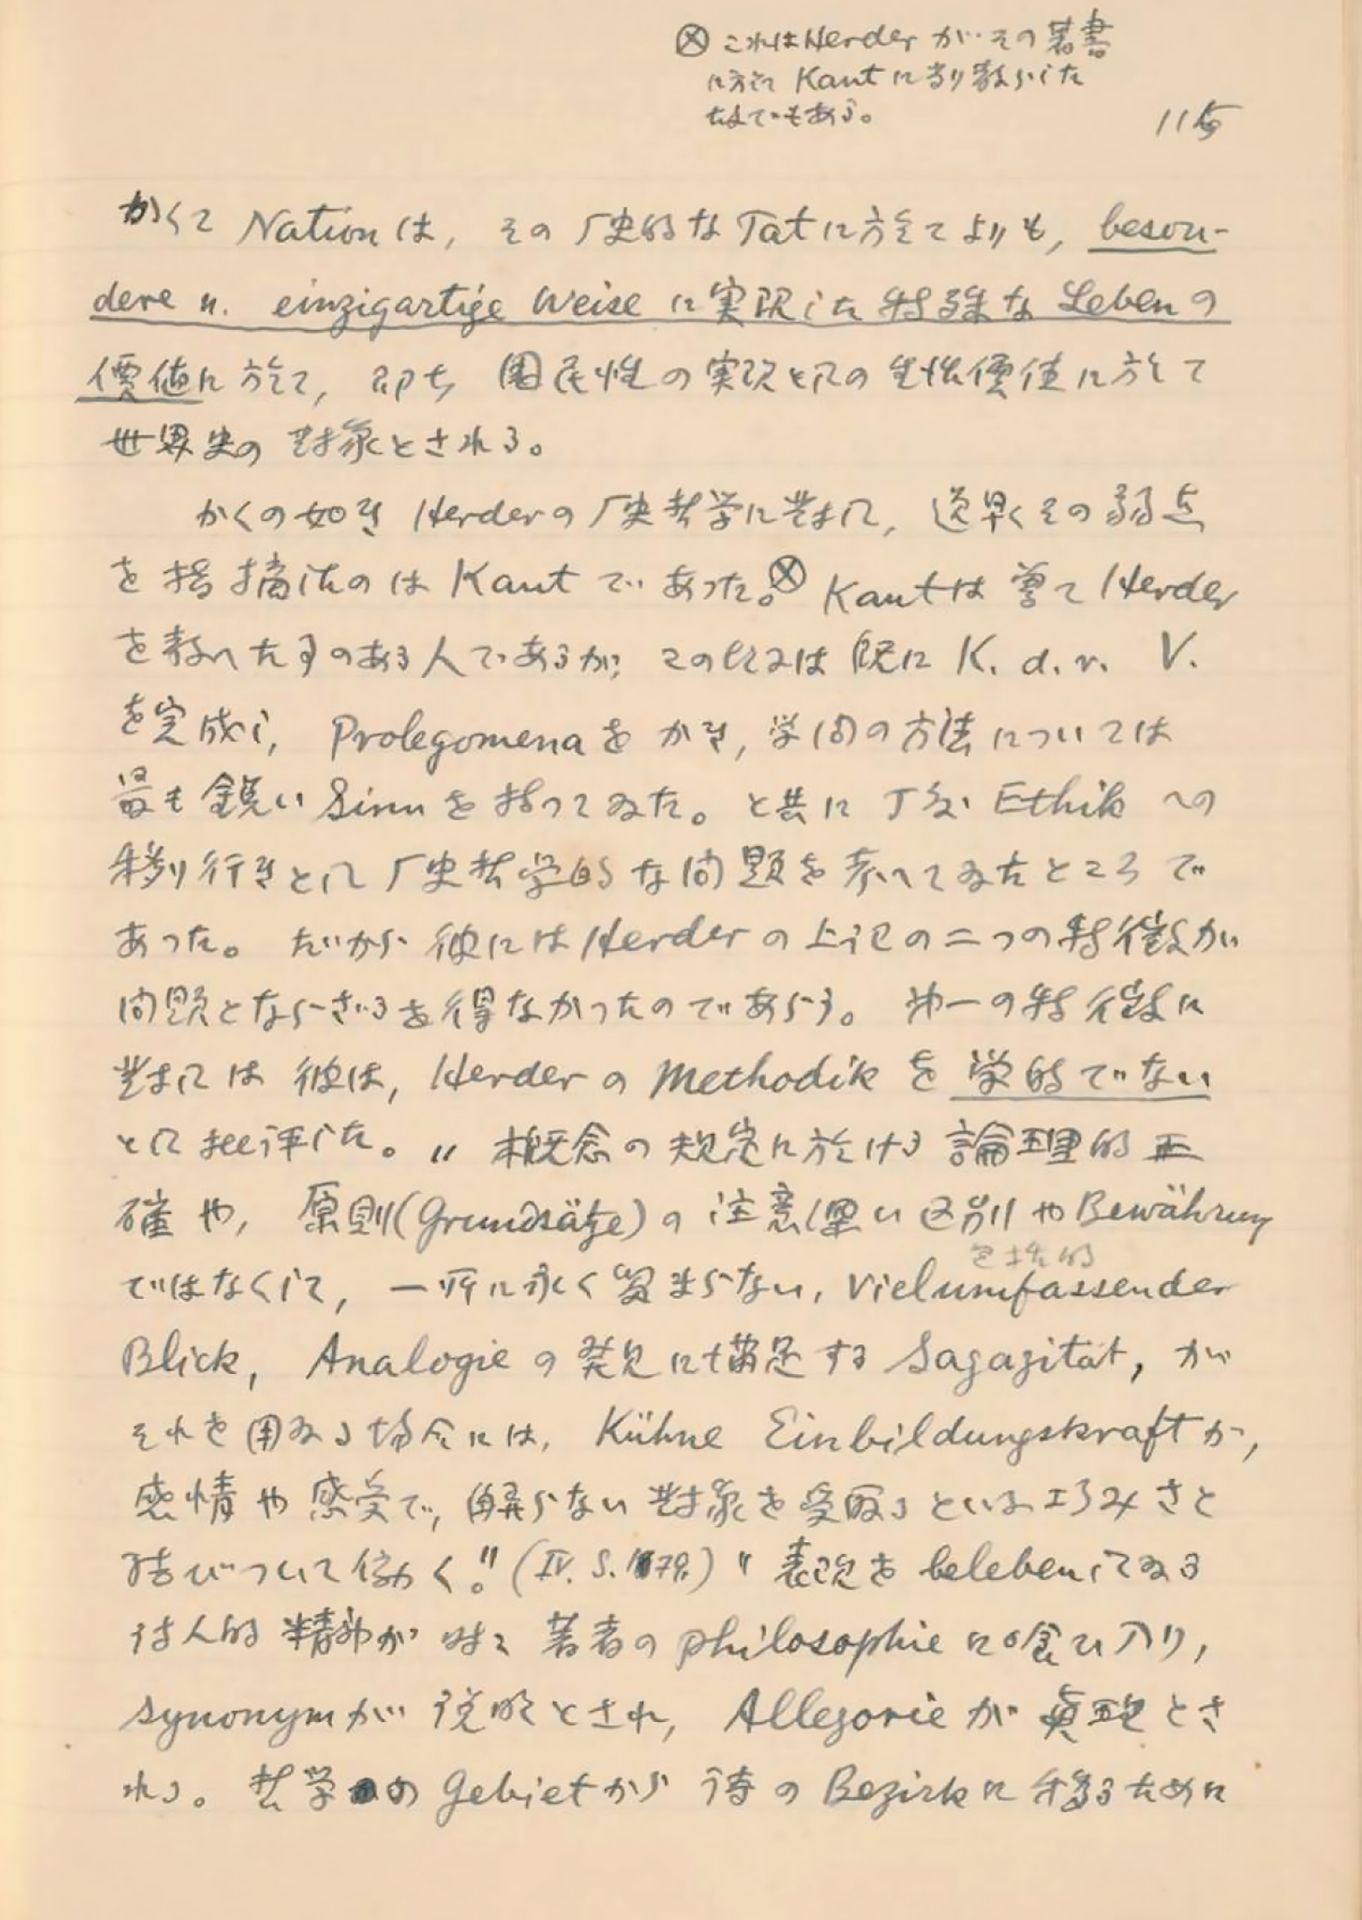 ⊗ これはHerder が、その著書
に於て Kant に当り散らした
ためでもある。
115
かくて Nation は, その歴史的な Tat に於てよりも, beson-
dere u. einzigartige Weise に実現した特殊な Leben の
價値に於て, 即ち 国民性の実現としての 生活價値に於て
世界史の 対象とされる。
かくの如き Herderの歴史哲学に対して, 逸早くその弱点
を指摘したのは Kant であった。⊗ Kantは 嘗て Herder
を教へた事のある人であるが, このときは 既に K. d. r. V.
を完成し, Prolegomena を かき, 学問の方法については
最も鋭い Sinn を持ってゐた。と共に 丁度 Ethik への
移り行きとして歴史哲学的な問題を考へてゐたところで
あった。だから 彼には Herder の上記の二つの特徴が
問題とならざるを得なかったのであらう。第一の特徴に
対しては 彼は, Herder の Methodik を 学的でない
として批評した。" 概念の規定に於ける 論理的正
確や, 原則(Grundsätze)の 注意深い区別や Bewährung
包括的
ではなくして, 一所に永く留まらない, vielumfassender
Blick, Analogie の発見に満足する Sagazität, が
それを用ゐる場合には, Kühne Einbildungskraft が,
感情や感受で, 解らない対象を受取るといふ巧みさと
結びついて働く。" (IV. S. 179.) " 表現を beleben してゐる
詩人的精神が 時々 著者の philosophie に喰ひ入り,
Synonym が 説明とされ, Allegorie が 真理とさ
れる。哲学の Gebiet から 詩の Bezirk に移るために